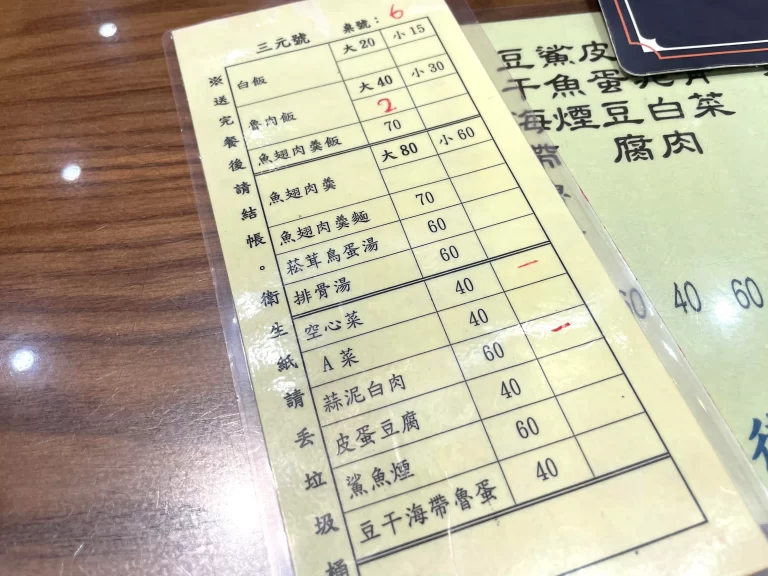 三元號 桌號：6
白飯 大20 小15
魯肉飯 大40 小30
2
魚翅肉羹飯 70
魚翅肉羹 大80 小60
魚翅肉羹麵 70
菘茸鳥蛋湯 60
排骨湯 60
空心菜 40 一
A菜 40
蒜泥白肉 60 一
皮蛋豆腐 40
鯊魚煙 60
豆干海帶魯蛋 40
※送完餐後請結帳。衛生紙請丟垃圾桶
豆干海帶
鯊魚煙
皮蛋豆腐
泥白肉
菜
60 40 60